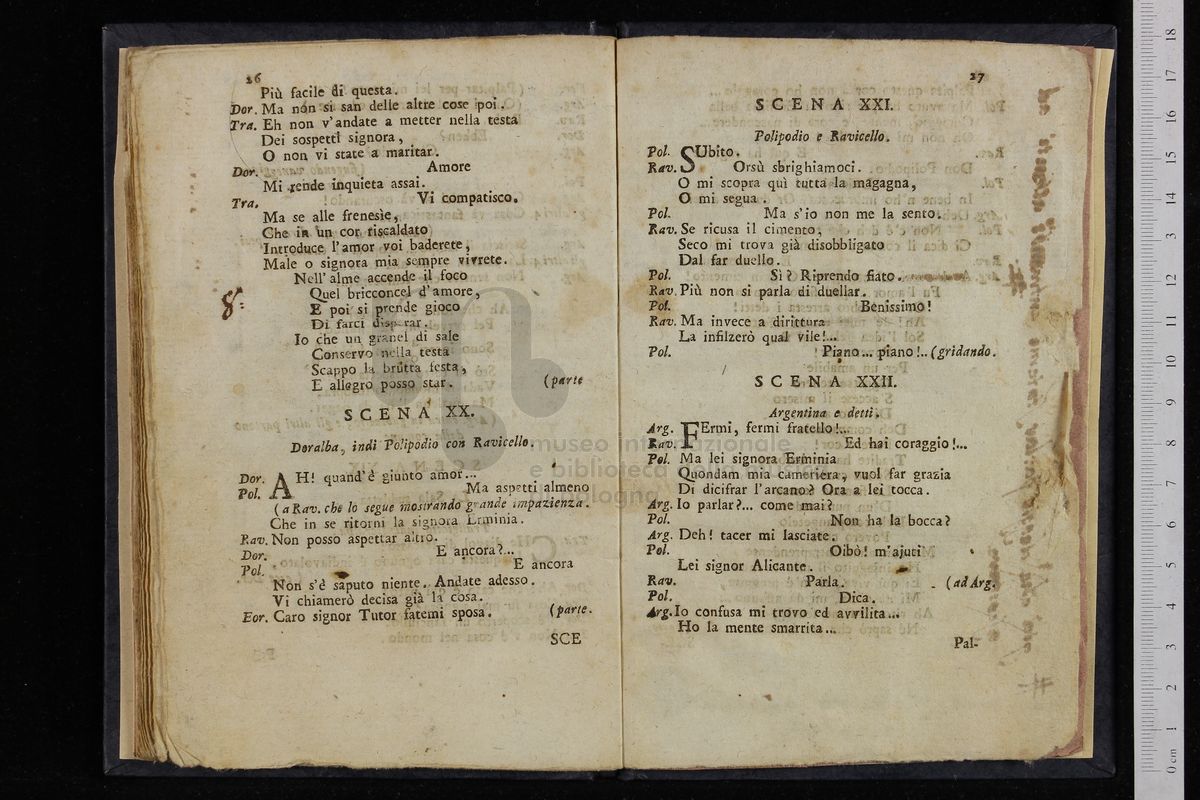 26
Più facile di questa.
Dor. Ma non si san delle altre cose poi.
Tra. Eh non v'andate a metter nella testa
Dei sospetti signora,
O non vi state a maritar.
Dor. Amore
Mi rende inquieta assai.
Tra. Vi compatisco.
Ma se alle frenesie,
Che in un cor riscaldato
Introduce l'amor voi baderete,
Male o signora mia sempre vivrete.
Nell'alme accende il foco
Quel bricconcel d'amore,
E poi si prende gioco
Di farci disperar.
Io che un granel di sale
Conservo nella testa
Scappo la brutta festa,
E allegro posso star. (parte
SCENA XX.
Doralba, indi Polipodio con Ravicello.
Dor. AH! quand'è giunto amor...
Pol. Ma aspetti almeno
(a Rav. che lo segue mostrando grande impazienza.
Che in se ritorni la signora Erminia.
Rav. Non posso aspettar altro.
Dor. E ancora?...
Pol. E ancora
Non s'è saputo niente. Andate adesso.
Vi chiamerò decisa già la cosa.
Eor. Caro signor Tutor fatemi sposa. (parte.
SCE
27
SCENA XXI.
Polipodio e Ravicello.
Pol. SUbito.
Rav. Orsù sbrighiamoci.
O mi scopra quì tutta la magagna,
O mi segua.
Pol. Ma s'io non me la sento.
Rav. Se ricusa il cimento,
Seco mi trova già disobbligato
Dal far duello.
Pol. Sì? Riprendo fiato.
Rav. Più non si parla di duellar.
Pol. Benissimo!
Rav. Ma invece a dirittura
La infilzerò qual vile!...
Pol. Piano... piano!.. (gridando.
SCENA XXII.
Argentina e detti.
Arg. FErmi, fermi fratello!...
Rav. Ed hai coraggio!...
Pol. Ma lei signora Erminia
Quondam mia cameriera, vuol far grazia
Di dicifrar l'arcano? Ora a lei tocca.
Arg. Io parlar?... come mai?
Pol. Non ha la bocca?
Arg. Deh! tacer mi lasciate.
Pol. Oibò! m'ajuti
Lei signor Alicante.
Rav. Parla. (ad Arg.
Pol. Dica.
Arg. Io confusa mi trovo ed avvilita...
Ho la mente smarrita...
Pal-
museo internazionale
e biblioteca della musica
di bologna
0 cm 1 2 3 4 5 6 7 8 9 10 11 12 13 14 15 16 17 18